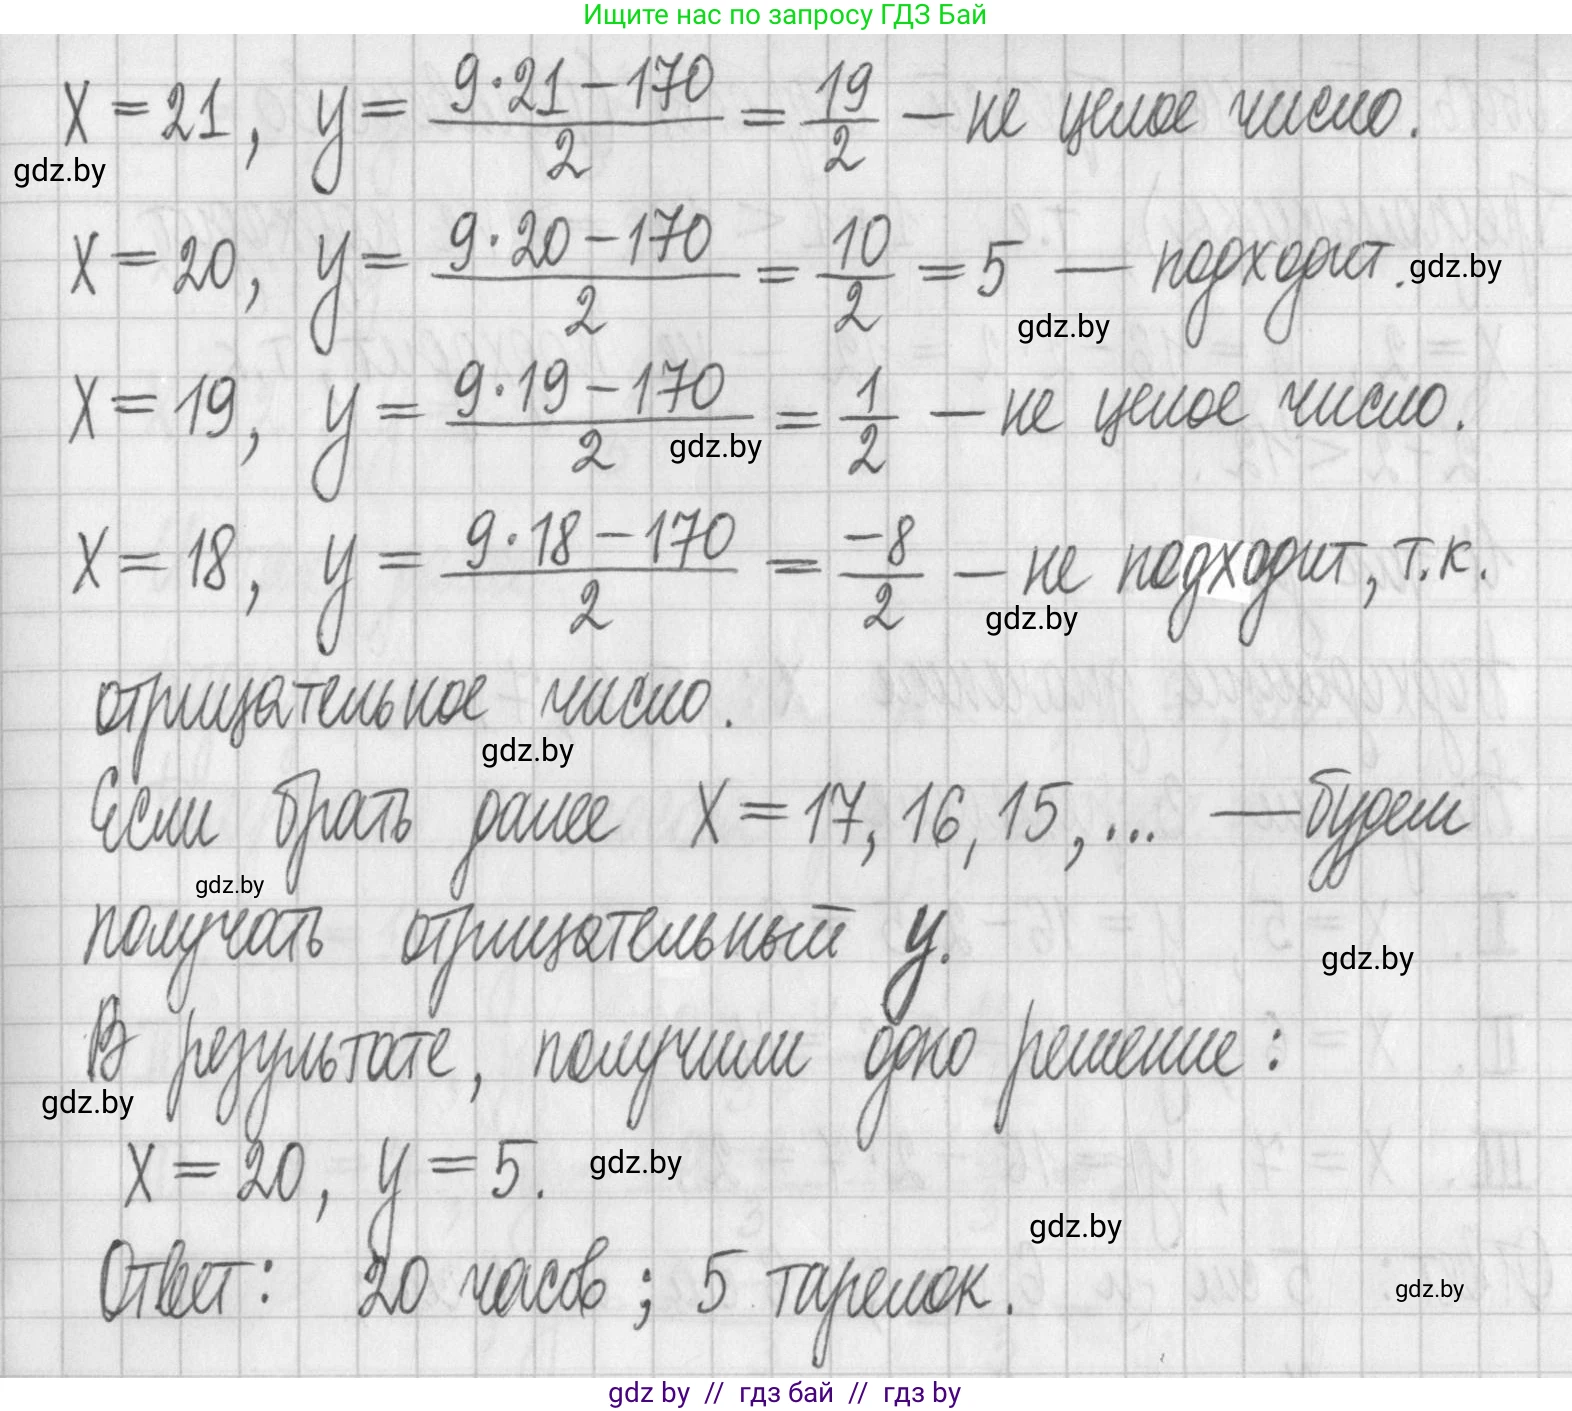 Ищите нас по запросу ГДЗ Бай
X = 21, y = (9·21 − 170)/2 = 19/2 — не целое число.
gdz.by
X = 20, y = (9·20 − 170)/2 = 10/2 = 5 — подходит. gdz.by
gdz.by
X = 19, y = (9·19 − 170)/2 = 1/2 — не целое число.
gdz.by
X = 18, y = (9·18 − 170)/2 = −8/2 — не подходит, т.к.
gdz.by
отрицательное число.
gdz.by
Если брать далее X = 17, 16, 15, ... — будем
gdz.by
получать отрицательный y.
gdz.by
В результате, получили одно решение:
gdz.by
X = 20, y = 5. gdz.by
gdz.by
Ответ: 20 часов; 5 тарелок.
gdz.by
gdz by // гдз бай // гдз by